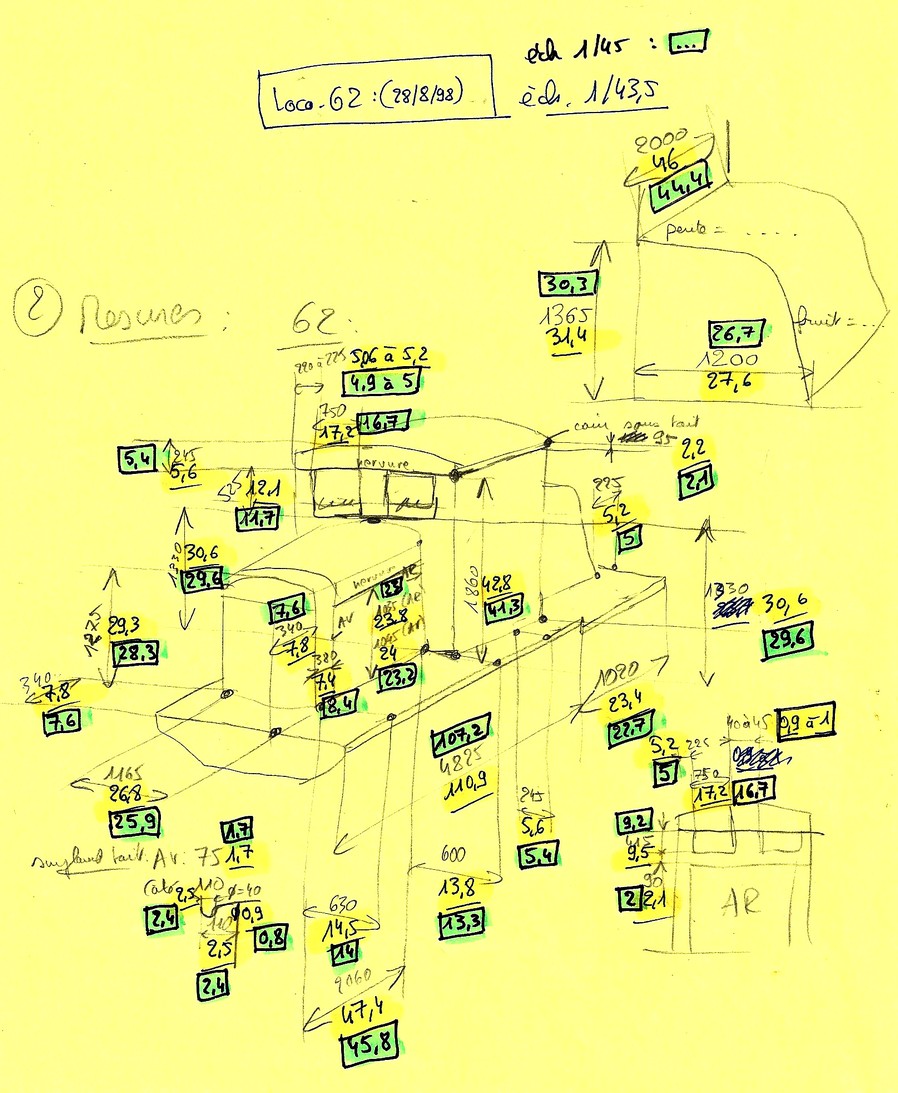 éch 1/45 : ...
Loco. 62 : (28/8/98)
éch. 1/43,5
2000
46
44,4
pente = .....
30,3
1365
31,4
fruit = ...
26,7
1200
27,6
2 Mesures : 62 :
220 à 225 5,06 à 5,2
4,9 à 5
750
17,2 16,7
coin sous toit
95
2,2
2,1
nervure
5,4
245
5,6
525 12,1
11,7
225
5,2
5
1330
30,6
29,6
1860
42,8
41,3
1330
30,6
29,6
29,3
28,3
nervure
AR
AV
23
1035 (AR)
23,8
1045 (AV)
24
23,2
7,6
340
7,8
340
7,8
7,6
380
7,4
8,4
1020
23,4
22,7
1165
26,8
25,9
107,2
4825
110,9
40 à 45 0,9 à 1
5,2 225
5
750
17,2 16,7
245
5,6
5,4
9,2
415
9,5
90
2 2,1
AR
1,7
toit. AV : 75 1,7
110 ø=40
2,5
2,4
0,9
0,8
110
2,5
2,4
600
13,8
13,3
630
14,5
14
2060
47,4
45,8